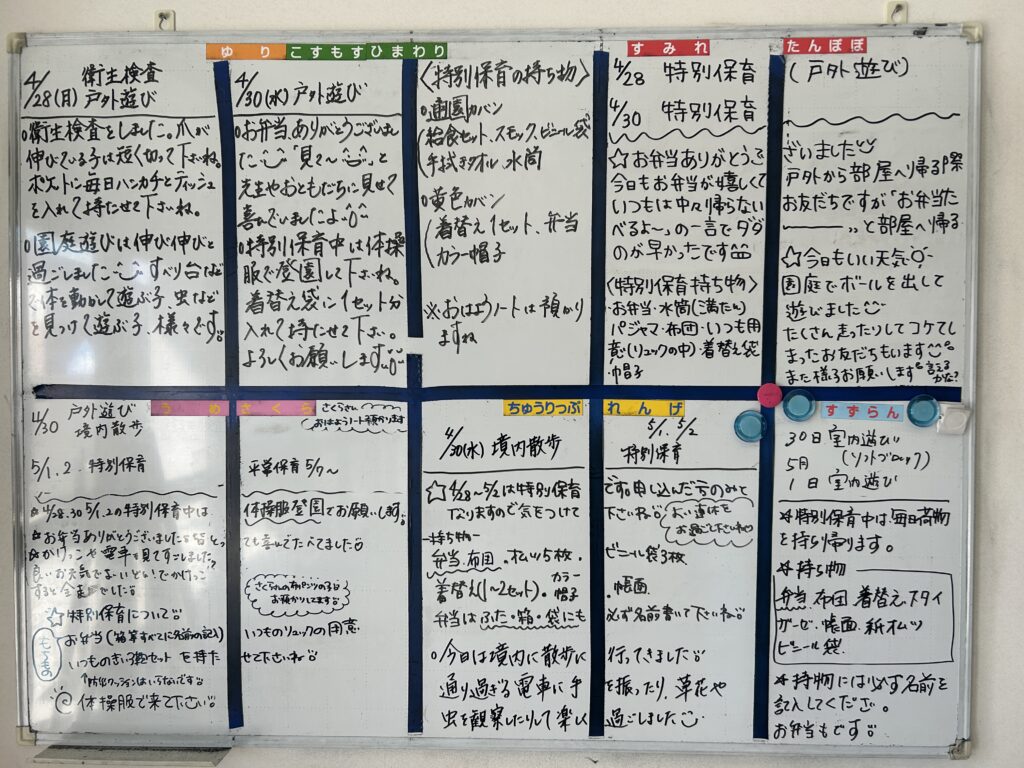 ゆり こすもす ひまわり
4/28(月) 衛生検査
戸外遊び
○衛生検査をしました。爪が
伸びている子は短く切って下さいね。
ポストに毎日ハンカチとティッシュ
を入れて持たせて下さいね。
○園庭遊びは伸び伸びと
過ごしました すべり台など
で体を動かして遊ぶ子、虫など
を見つけて遊ぶ子、様々です。
4/30(水) 戸外遊び
○お弁当、ありがとうございまし
た 「見て〜」と
先生やおともだちに見せて
喜んでいましたよ
○特別保育中は体操
服で登園して下さいね。
着替え袋に1セット分
入れて持たせて下さい。
よろしくお願いします
〈特別保育の持ち物〉
○通園カバン
(給食セット、スモック、ビニール袋
手拭きタオル、水筒
○黄色カバン
(着替え1セット、弁当
カラー帽子
※おはようノートは預かり
ますね
すみれ たんぽぽ
4/28 特別保育 (戸外遊び)
4/30 特別保育
☆お弁当ありがとうございました
今日もお弁当が嬉しくて 戸外から部屋へ帰る際
いつもは中々帰らない お友だちですが「お弁当た
べるよ〜」の一言でダダダ ーーー」と部屋へ帰る
のが早かったです
〈特別保育持ち物〉
・お弁当・水筒(満たん)
パジャマ・布団・いつも用
意(リュックの中)・着替え袋
・帽子
☆今日もいい天気
園庭でボールを出して
遊びました
たくさん走ったりしてコケてし
まったお友だちもいます
また様子お願いします 言えるかな?
うめ さくら
4/30 戸外遊び
境内散歩
5/1.2 特別保育
さくらさん
おはようノート預かります
平常保育 5/7〜
○4/28.30 5/1.2の特別保育中は 体操服登園でお願いします。
☆お弁当ありがとうございました 皆とっても喜んでたべてました
☆かけっこや電車を見てすごしました。
良いお気
☆特別保育について
もちもの
お弁当(箱等すべてに名前の記入) いつものリュックの用意
いつもの セットを持たせて下さいね
↑防災クッションはいらないです
体操服で来て下さい
さくらさんの布パンツの子
お預かりしてます
ちゅうりっぷ れんげ
4/30(水) 境内散歩
5/1、5/2
特別保育
☆4/28〜5/2は特別保育です。申し込んだ方のみと
なりますので気をつけて下さいね
よい連休を
お過ごし下さいね
ー持ち物ー
弁当、布団、オムツ5枚、ビニール袋3枚
着替え(1〜2セット)。カラー帽子、帳面
弁当はふた・箱・袋にも必ず名前書いて下さいね
○今日は境内に散歩に行ってきました
通り過ぎる電車に手を振ったり、草花や
虫を観察したりして楽しく過ごしました
すずらん
30日 室内遊び
(ソフトブロック)
5月
1日 室内遊び
＊特別保育中は、毎日荷物
を持ち帰ります。
＊持ち物
弁当、布団、着替え、スタイ
ガーゼ・帳面、紙オムツ
ビニール袋
＊持物には必ず名前を
記入してください。
お弁当もです